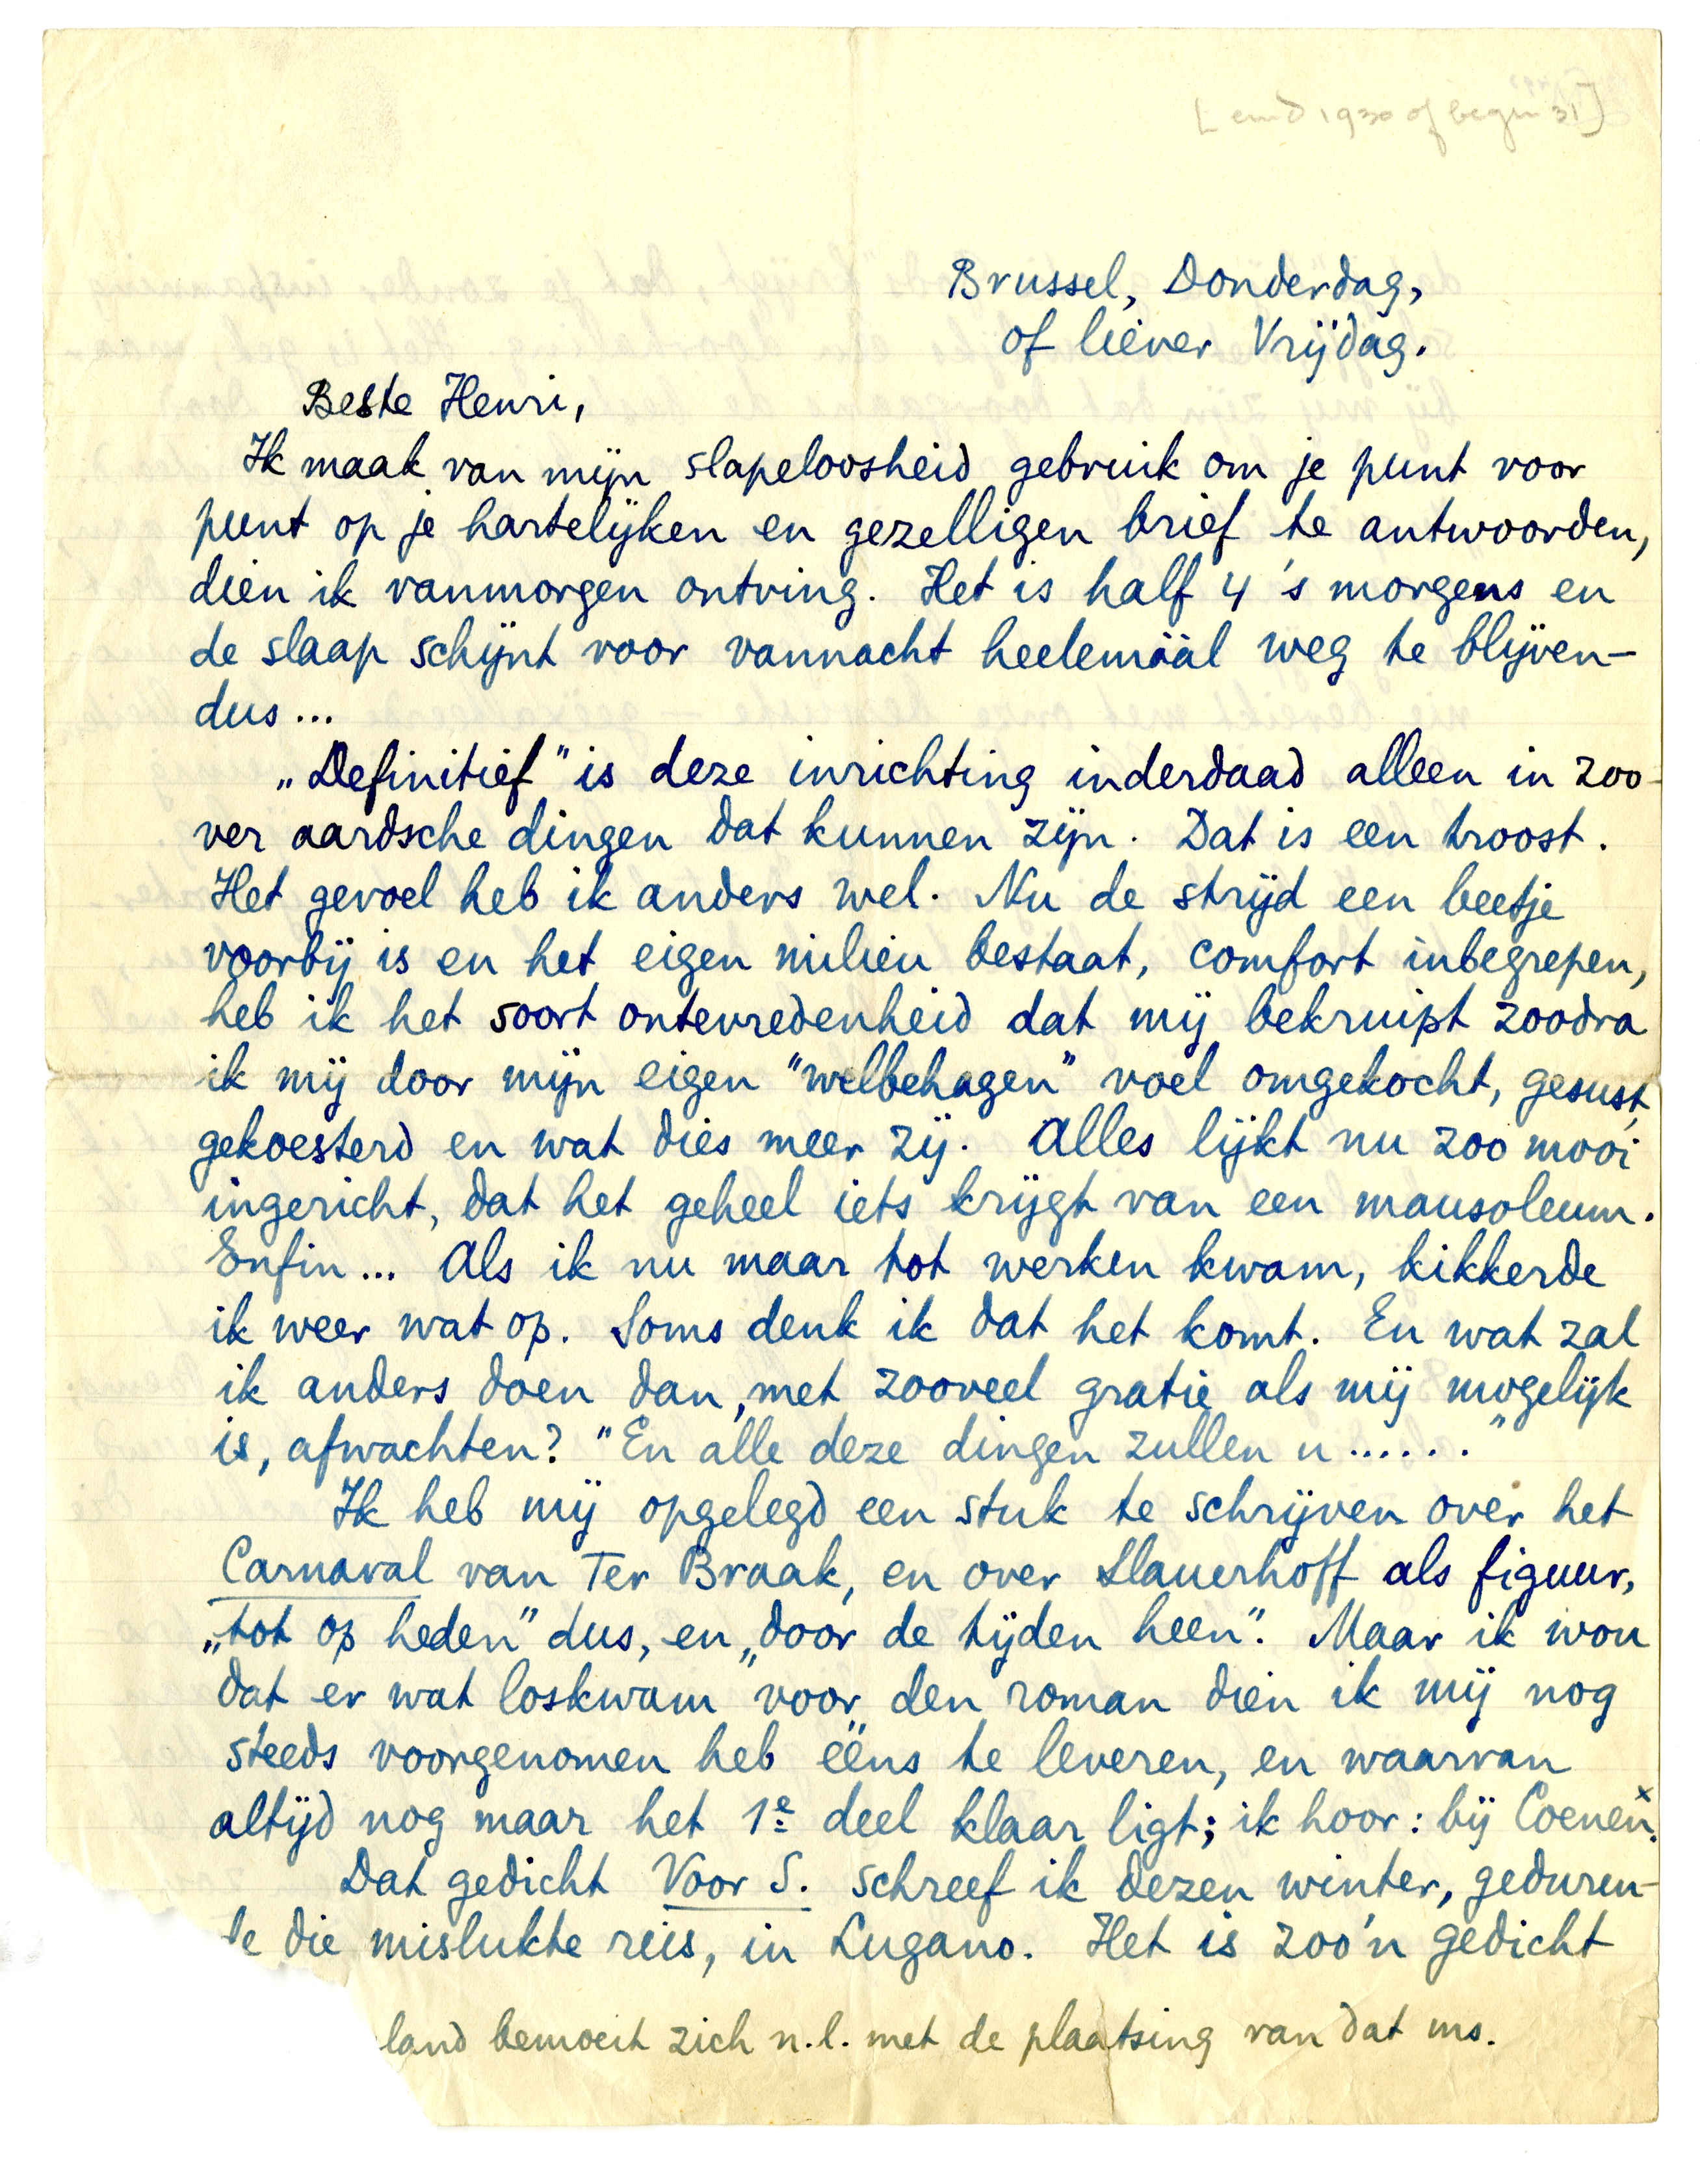 [eind 1930 of begin 31]
Brussel, Donderdag,
of liever Vrijdag.
Beste Henri,
Ik maak van mijn slapeloosheid gebruik om je punt voor
punt op je hartelijken en gezelligen brief te antwoorden,
dien ik vanmorgen ontving. Het is half 4 's morgens en
de slaap schijnt voor vannacht heelemáál weg te blijven-
dus...
„Definitief" is deze inrichting inderdaad alleen in zoo-
ver aardsche dingen dat kunnen zijn. Dat is een troost.
Het gevoel heb ik anders wel. Nu de strijd een beetje
voorbij is en het eigen milieu bestaat, comfort inbegrepen,
heb ik het soort ontevredenheid dat mij bekruipt zoodra
ik mij door mijn eigen "welbehagen" voel omgekocht, gesust,
gekoesterd en wat dies meer zij. Alles lijkt nu zoo mooi
ingericht, dat het geheel iets krijgt van een mausoleum.
Enfin... Als ik nu maar tot werken kwam, kikkerde
ik weer wat op. Soms denk ik dat het komt. En wat zal
ik anders doen dan, met zooveel gratie als mij mogelijk
is, afwachten? "En alle deze dingen zullen u......"
Ik heb mij opgelegd een stuk te schrijven over het
Carnaval van Ter Braak, en over Slauerhoff als figuur,
„tot op heden" dus, en „door de tijden heen". Maar ik wou
dat er wat loskwam voor den roman dien ik mij nog
steeds voorgenomen heb ééns te leveren, en waarvan
altijd nog maar het 1e deel klaar ligt; ik hoor: bij Coenen.x
Dat gedicht Voor S. schreef ik dezen winter, geduren-
de die mislukte reis, in Lugano. Het is zoo'n gedicht
land bemoeit zich n.l. met de plaatsing van dat ms.